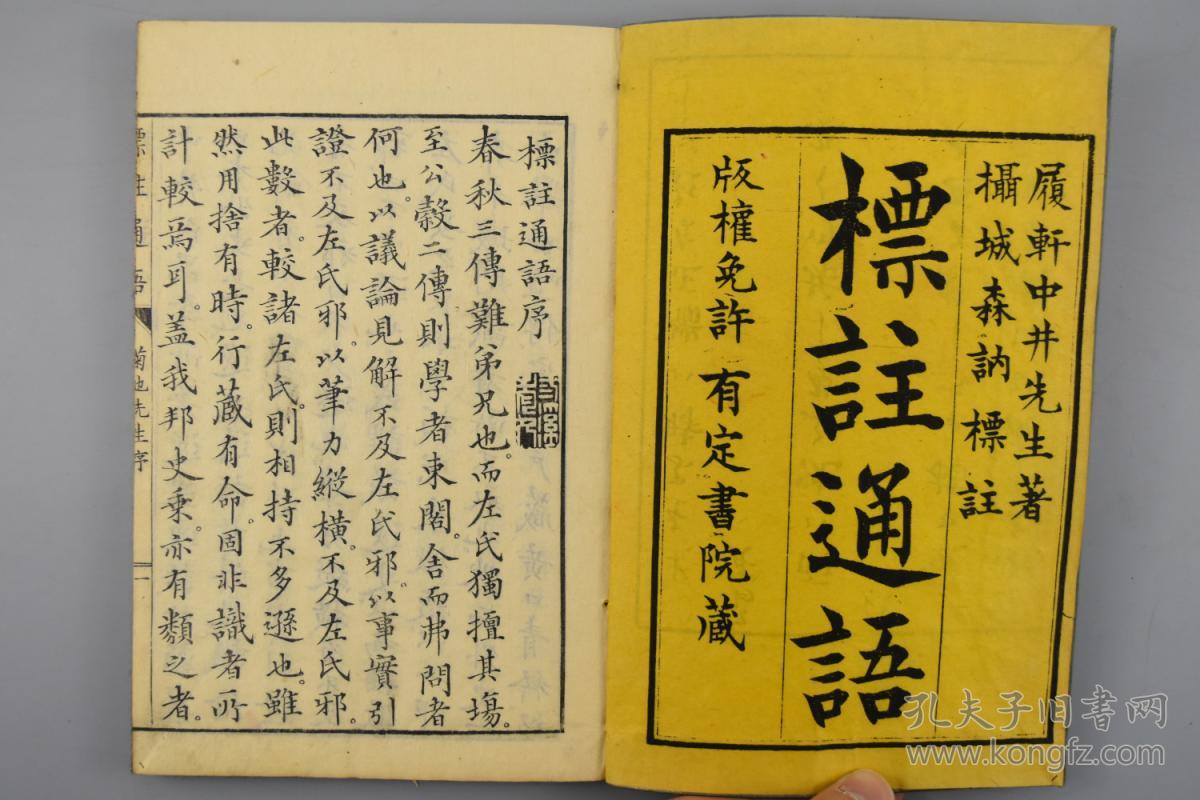 履軒中井先生著
攝城森訥標註
標註通語
版權免許 有定書院藏
標註通語序
春秋三傳難弟兄也。而左氏獨擅其場。
至公穀二傳則學者束閣。舍而弗問者
何也。以議論見解不及左氏邪。以事實引
證不及左氏邪。以筆力縱橫。不及左氏邪。
此數者。較諸左氏。則相持不多遜也。雖
然用捨有時。行藏有命。固非識者所
計較焉耳。蓋我邦史乘。亦有類之者。
標註通語
菊池先生序
一
孔夫子旧书网
www.kongfz.com